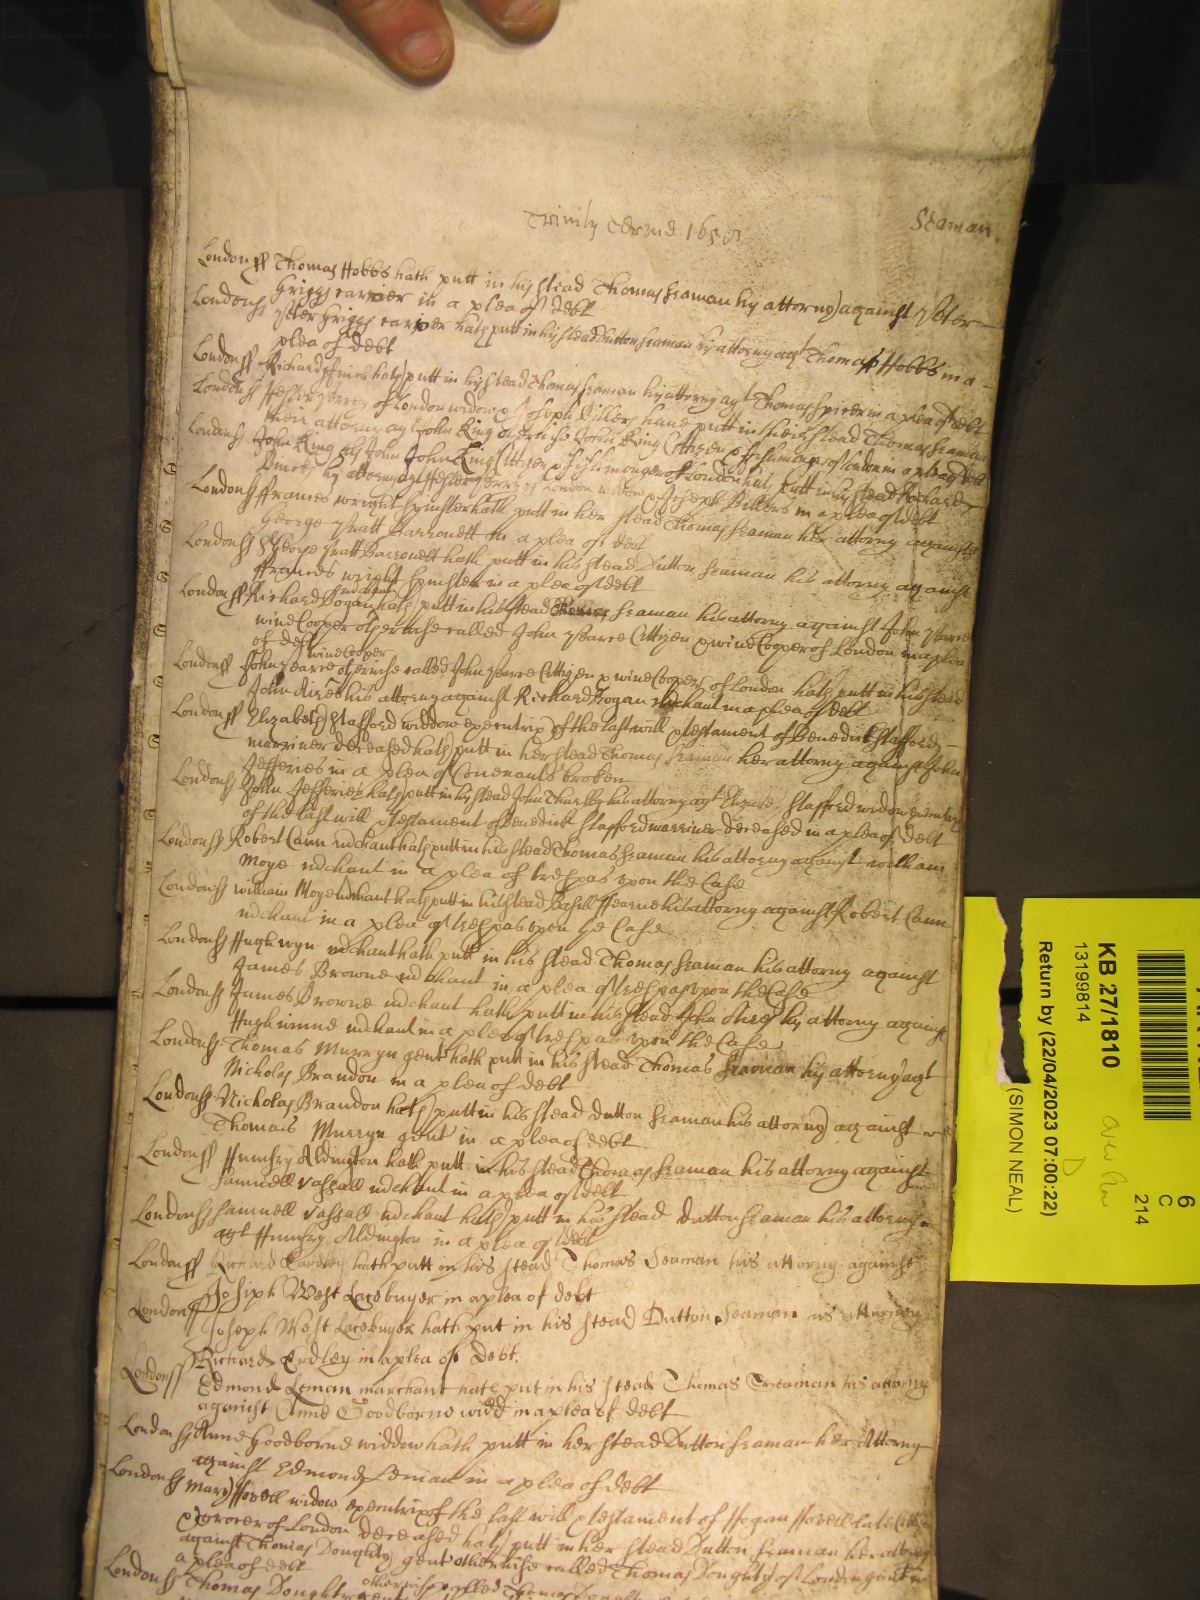 Trinity Terme 165
Seaman.
London ss Thomas Hobbs hath putt in his stead Thomas Seaman his attorny against Peter
Griggs carrier in a plea of debt
London ss Peter Griggs carrier hath putt in his stead Dutton Seaman his attorny agt Thomas Hobbs in a
plea of debt
London ss Richard hath putt in his stead Thomas Seaman his attorny agt Thomas Spicer in a plea of debt
London ss Hester of London widow & Joseph Billers have putt in their stead Thomas Seaman
their attorny agt John King otherwise John King Cittizen & ffishmonger of London in a plea of debt
London ss John King als John King Cittizen & ffishmonger of London hath putt in his stead Richard
his attorny agt Hester of London widow & Joseph Billers in a plea of debt
London ss ffrances wright Spinster hath putt in her stead Thomas Seaman her attorny against
George Pratt Barronett in a plea of debt
London ss George Pratt Barronett hath putt in his stead Dutton Seaman his attorny against
ffrances wright Spinster in a plea of debt
London ss Richard Bogan mchant hath putt in his stead Thomas Seaman his attorny against John Pearce
wineCooper otherwise called John Pearce Cittizen & wineCooper of London in a plea
of debt
London ss John Pearce wineCooper otherwise called John Pearce Cittizen & wineCooper of London hath putt in his stead
John his attorny against Richard Bogan mchant in a plea of debt
London ss Elizabeth Stafford widdow executrix of the last will & testament of Benedick Stafford
marriner deceased hath putt in her stead Thomas Seaman her attorny against John
Jefferies in a plea of Covenants broken
London ss John Jefferies hath putt in his stead John his attorny agt Elizabeth Stafford widow executrix
of the last will & testament of Benedick Stafford marriner deceased in a plea of debt
London ss Robert Cann mchant hath putt in his stead Thomas Seaman his attorny against william
Moye mchant in a plea of trespas upon the Case
London ss william Moye mchant hath putt in his stead Basill ffearne his attorny against Robert Cann
mchant in a plea of trespas upon the Case
London ss Hugh wyn mchant hath putt in his stead Thomas Seaman his attorny against
James Browne mchant in a plea of trespas upon the Case
London ss James Browne mchant hath putt in his stead John his attorny against
Hugh winne mchant in a plea of trespas upon the Case
London ss Thomas Murryn gent hath putt in his stead Thomas Seaman his attorny agt
Nicholas Brandon in a plea of debt
London ss Nicholas Brandon hath putt in his stead Dutton Seaman his attorny against
Thomas Murryn gent in a plea of debt
London ss Humfry Aldington hath putt in his stead Thomas Seaman his attorny against
Samuell Vassall mchant in a plea of debt
London ss Samuell Vassall mchant hath putt in his stead Dutton Seaman his attorny
agt Humfry Aldington in a plea of debt
London ss Richard Eardley hath putt in his stead Thomas Seaman his attorny against
Joseph West Lacebuyer in a plea of debt
London ss Joseph West Lacebuyer hath put in his stead Dutton Seaman his attorney
Richard Erdley in a plea of Debt.
London ss Edmond Leman marchant hath put in his stead Thomas Seaman his attorny
against Anne Goodborne widd in a plea of debt
London ss Anne Goodborne widdow hath putt in her stead Dutton Seaman her Attorny
against Edmond Leman in a plea of debt
London ss Mary Hovell widow executrix of the last will & testament of Hogan Hovell late
& Grocer of London deceased hath putt in her stead Dutton Seaman her attorny
against Thomas Doughty gent otherwise called Thomas Doughty of London gent in
a plea of debt
London ss Thomas Doughty gent otherwise called Thomas
KB 27/1810
13199814
Return by (22/04/2023 07:00:22)
(SIMON NEAL)
D
6
C
214